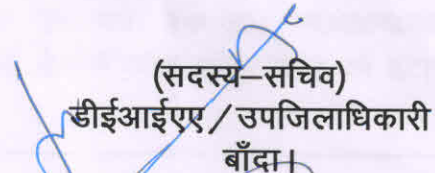 (सदस्य–सचिव)
डीईआईएए / उपजिलाधिकारी
बाँदा।